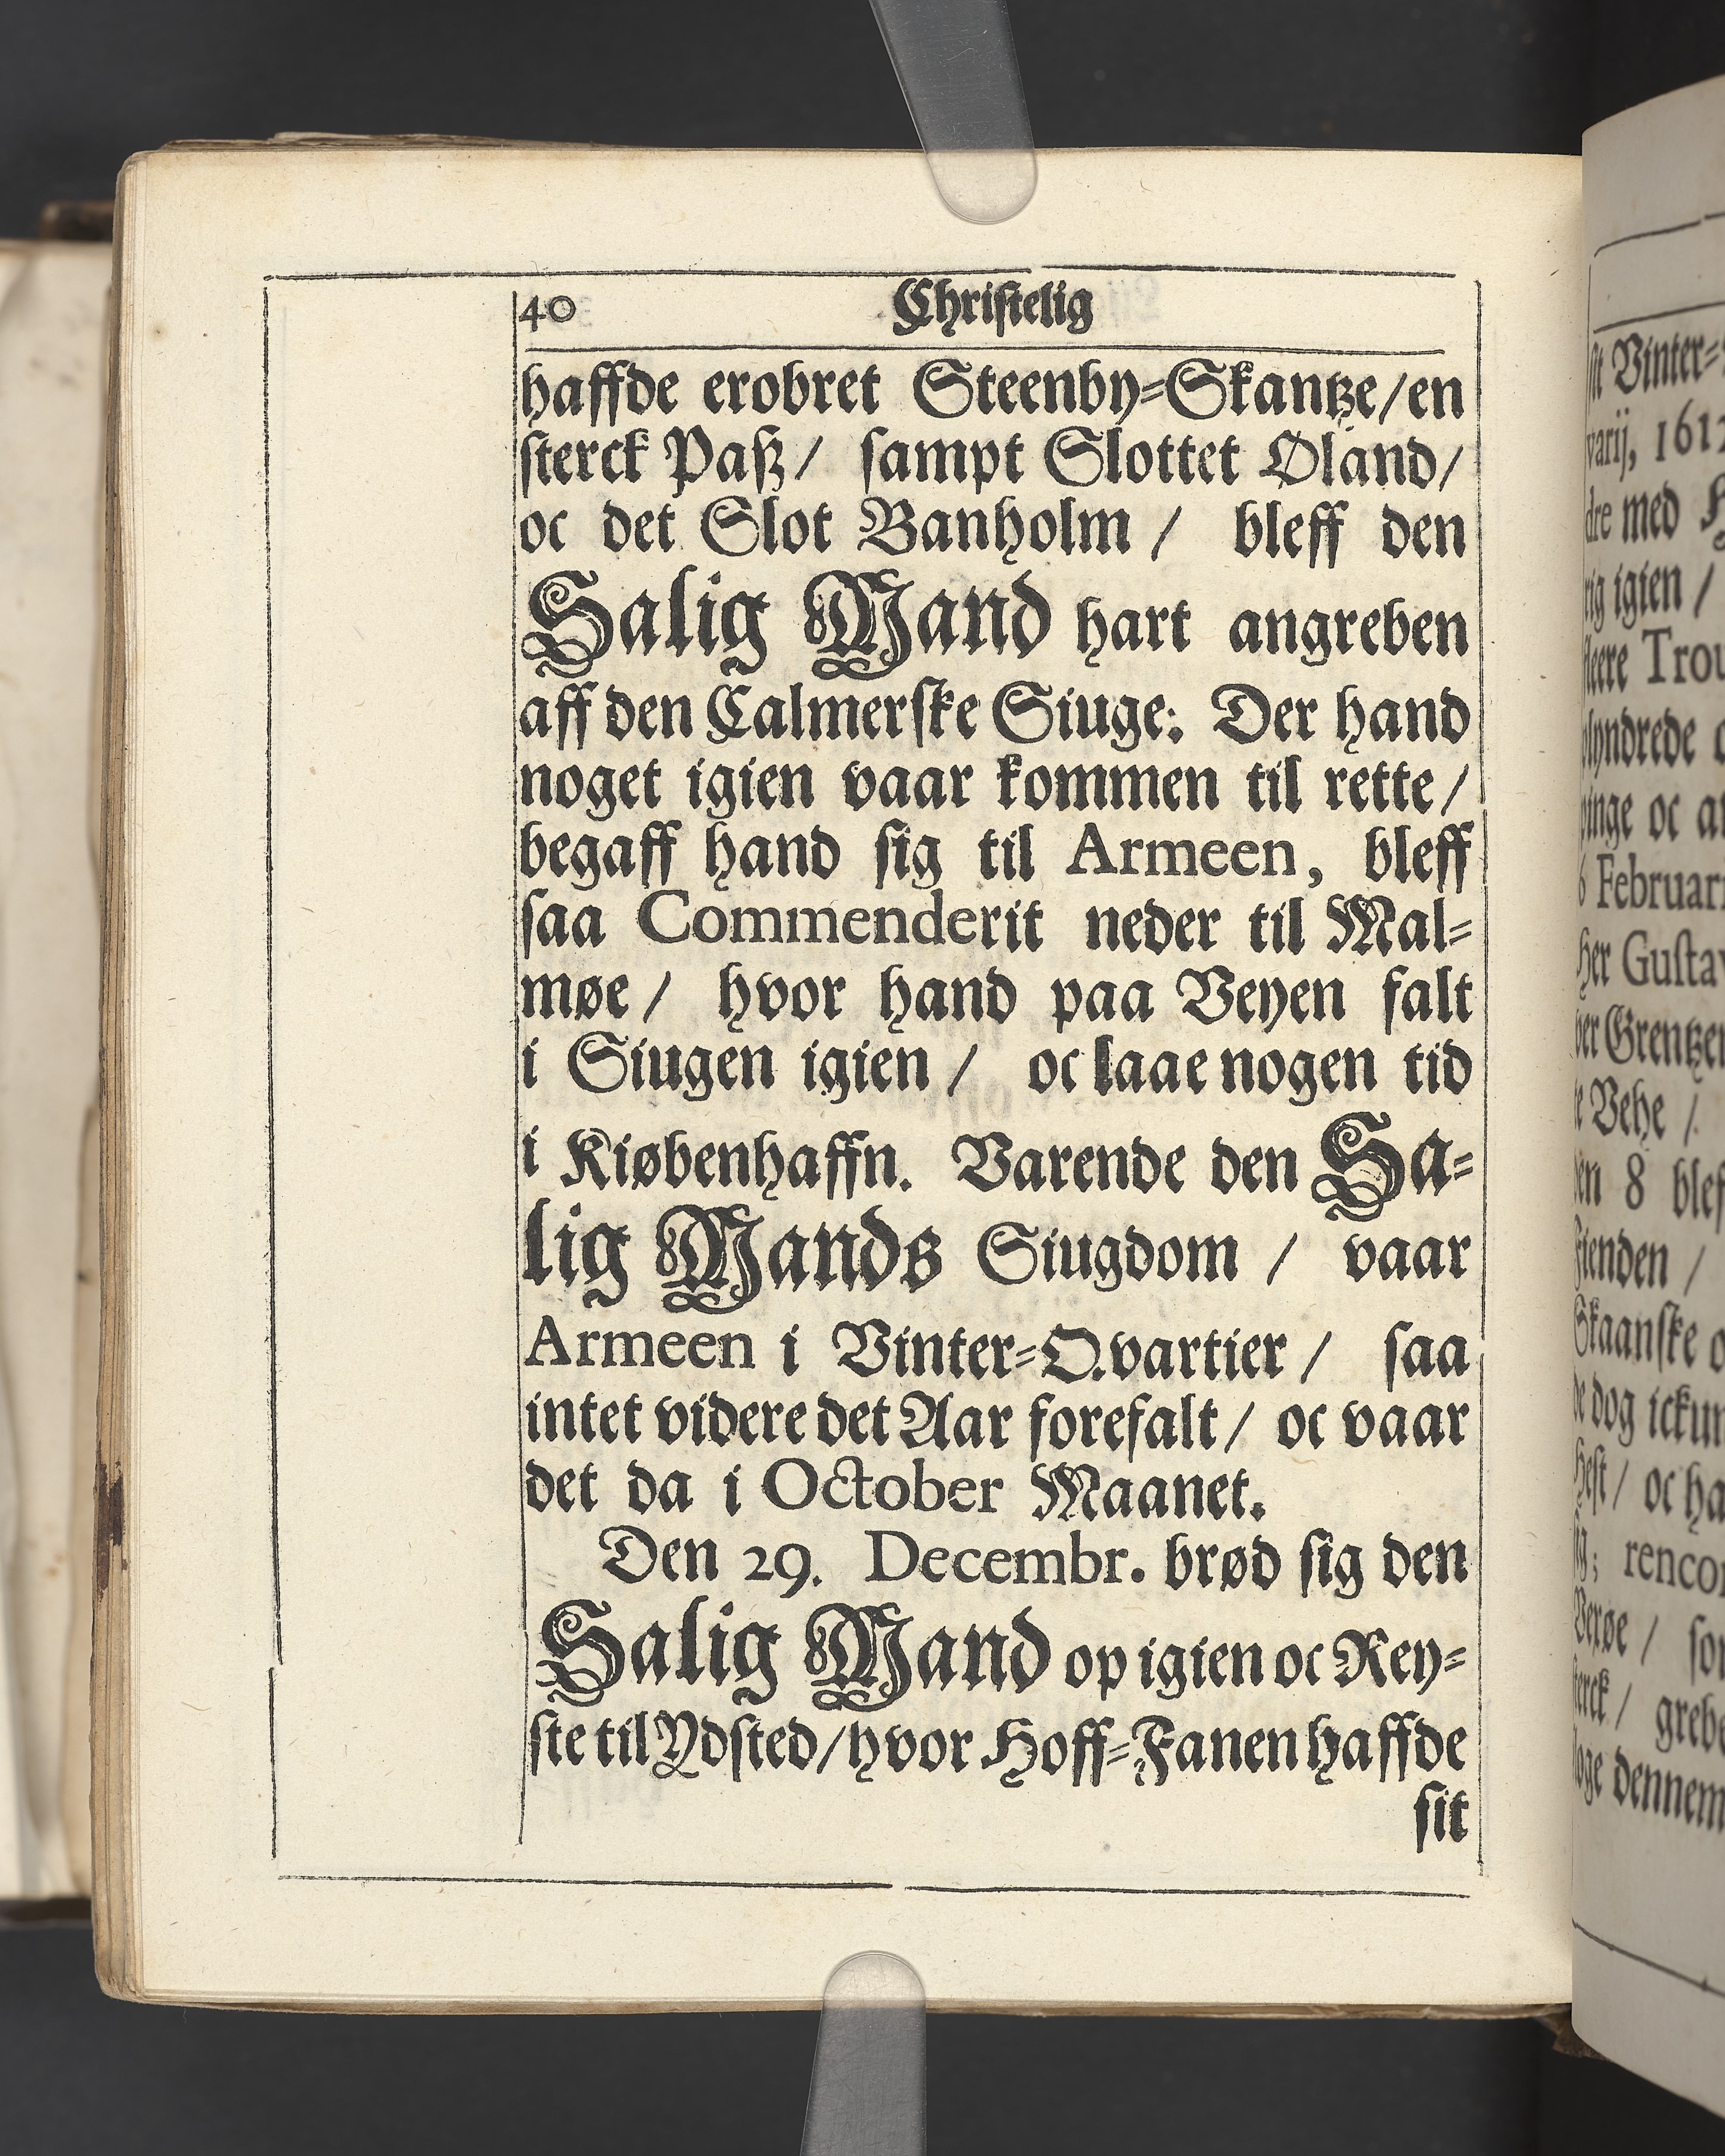 40 Christelig
haffde erobret Steenby-Skantze/ en
sterck Paß/ sampt Slottet Oland/
oc det Slot Banholm / bleff den
Salig Mand hart angreben
aff den Calmerske Siuge: Der hand
noget igien vaar kommen til rette/
begaff hand sig til Armeen, bleff
saa Commenderit neder til Mal-
møe / hvor hand paa Veyen falt
i Siugen igien / oc laae nogen tid
i Kiøbenhaffn. Varende den Sa-
lig Mands Siugdom / vaar
Armeen i Vinter-Qvartier / saa
intet videre det Aar forefalt / oc vaar
det da i October Maanet.
Den 29. Decembr. brød sig den
Salig Mand op igien oc Rey-
ste til Ydsted/ hvor Hoff-Fanen haffde
sit
Vinter-
varij, 1612
med
igien /
Trou
plyndrede
oc
Februari
Her Gustav
Grentzen
Vehe /
8 blef
Fienden /
Skaanske
dog ickun
Hest / oc ha
rencon
greb
dennem